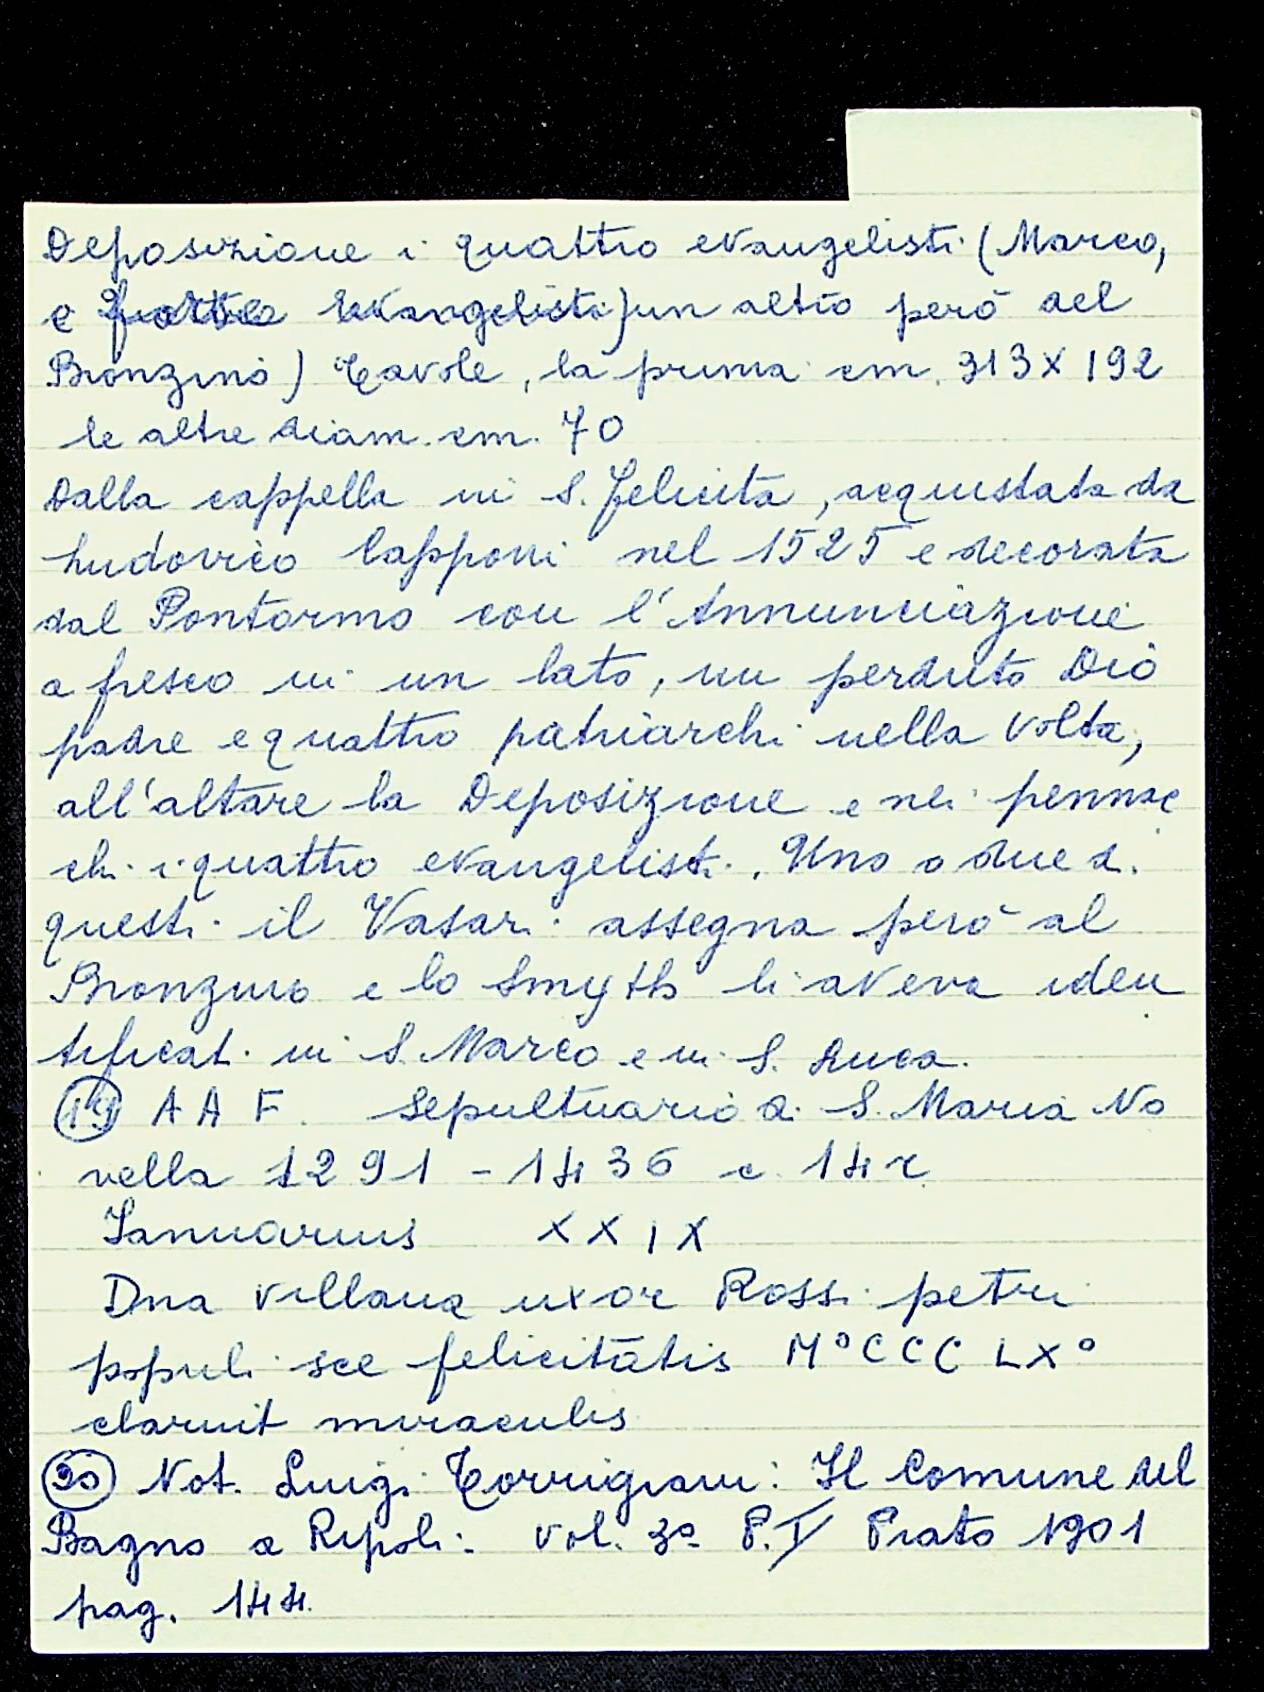 Deposizione i quattro evangelisti (Marco,
e quattro evangelisti) un altro però del
Bronzino) Tavole, la prima cm. 313 X 192
le altre diam. cm. 70
Dalla cappella in S. Felicita, acquistata da
Ludovico Capponi nel 1525 e decorata
dal Pontormo con l'Annunciazione
a fresco in un lato, un perduto Dio
padre e quattro patriarchi nella volta,
all'altare la Deposizione e nei pennac
chi i quattro evangelisti. Uno o due di
questi il Vasari assegna però al
Bronzino e lo Smyth li aveva iden
tificati in S. Marco e in S. Luca.
A A F. Sepultuario di S. Maria No
vella 1291 - 1436 c. 14 r
Ianuarius XXIX
Dna Villana uxor Rossi petri
populi sce felicitātis M° CCC LX°
claruit miraculis
Not. Luigi Torrigiani: Il Comune del
Bagno a Ripoli: vol. 3° P. I Prato 1901
pag. 144.